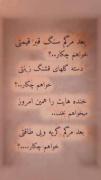 بعد مرگم سنگ قبر قیمتی
خواهم چکار..؟
دسته گلهای قشنگ زینتی
خواهم چکار..؟
خنده هایت را همین امروز
میخواهم بخند..
بعد مرگم گریه وبی طاقتی
خواهم چکار....؟